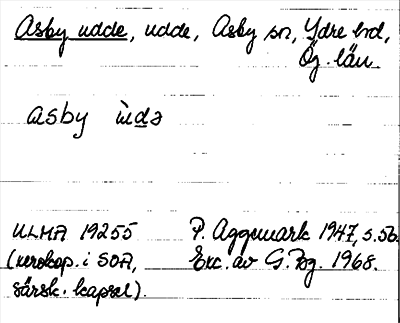 Asby udde, udde, Asby sn, Ydre hd,
Ög. län
asby ùdə
ULMA 19255
(xerokop. i SOA,
särsk. kapsel).
P. Aggemark 1947, s. 56.
Exc. av G. Bg. 1968.